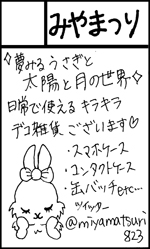 みやまつり
✧夢みるうさぎと
太陽と月の世界✧
日常で使える キラキラ
デコ雑貨 ございます♡
・スマホケース
・コンタクトケース
・缶バッチetc…
ツイッター
@miyamatsuri
823